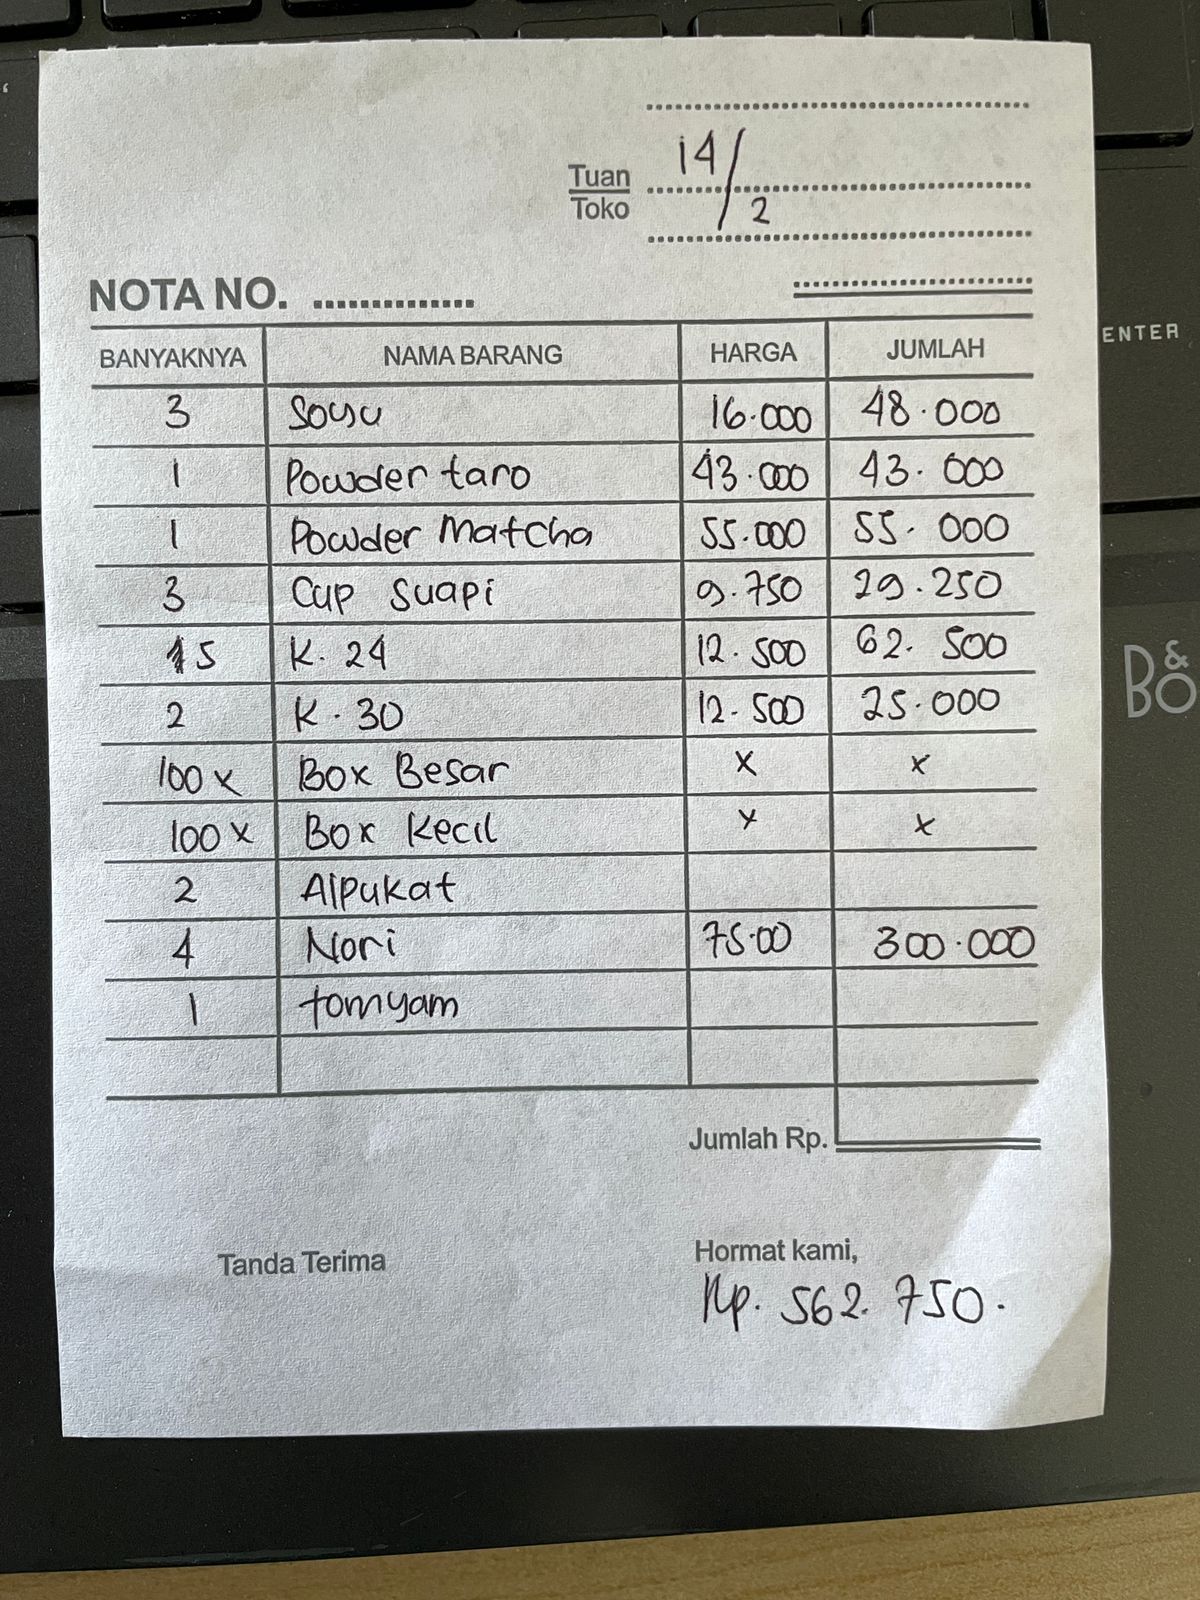 14/2
Tuan
Toko
NOTA NO. ..............
BANYAKNYA NAMA BARANG HARGA JUMLAH
3 Soyu 16.000 48.000
1 Powder taro 43.000 43.000
1 Powder Matcha 55.000 55.000
3 Cup Suapi 9.750 29.250
5 K. 24 12.500 62.500
2 K. 30 12.500 25.000
100 x Box Besar x x
100 x Box Kecil x x
2 Alpukat
4 Nori 75.00 300.000
1 tomyam
Jumlah Rp.
Tanda Terima Hormat kami,
Rp. 562.750.
ENTER
B&O